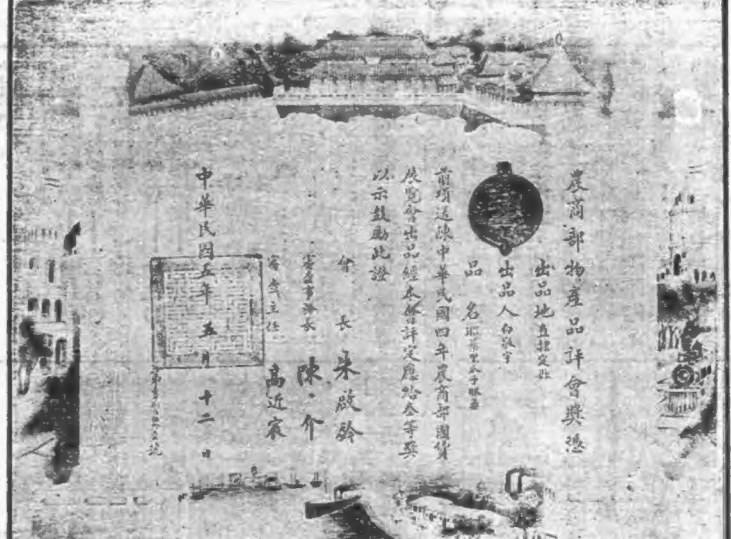 農商部物產品評會獎憑
出品地 直隸定縣
出品人 白敬宇
品名 眼藥
前項送陳中華民國四年農商部國貨
展覽會出品經本會評定應給叁等獎
以示鼓勵此證
會長 朱啟鈐
審查事務長 陳介
審查主任 高近宸
中華民國五年五月十二日